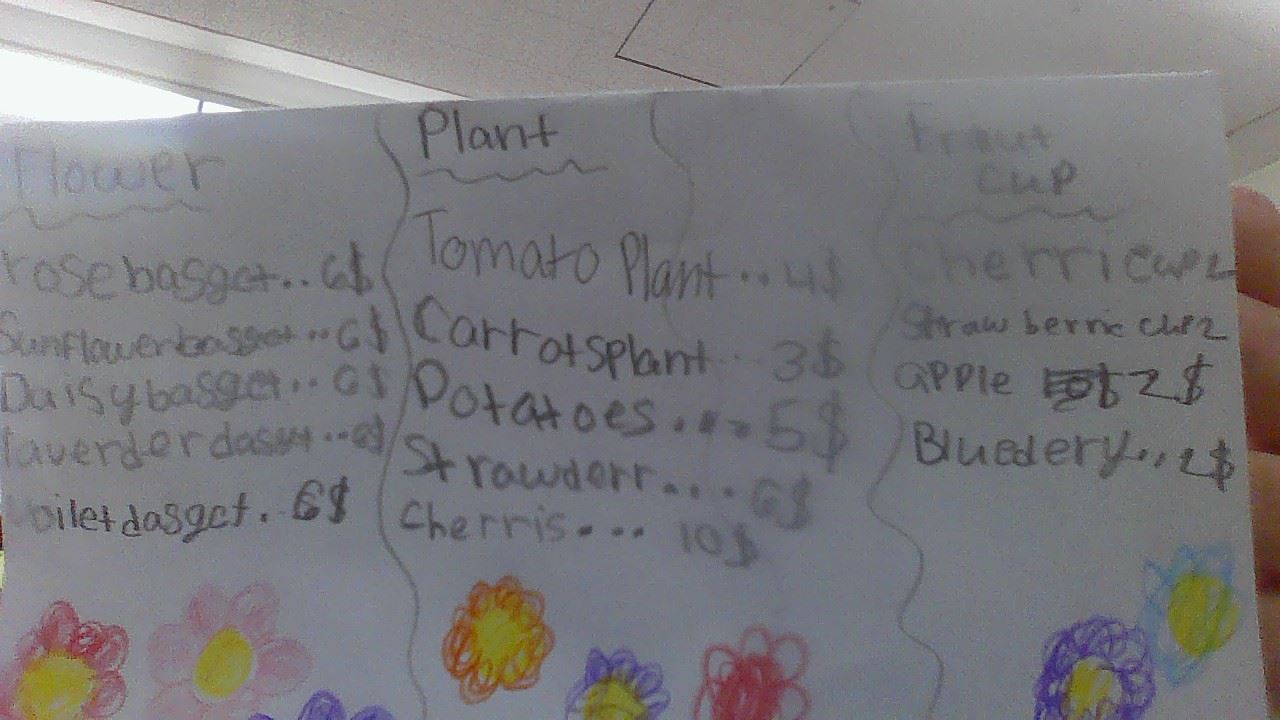 Flower
rosebasget..6$
Sunflowerbasget..6$
Daisybasget..6$
laverderdasget..6$
voiletdasget. 6$
Plant
Tomato Plant..4$
Carrotsplant..3$
Potatoes....5$
Strawderr....6$
Cherris.... 10$
Fraut
cup
Cherri cup 2
Strawberrie cup 2
apple 2$
Bluedery...2$